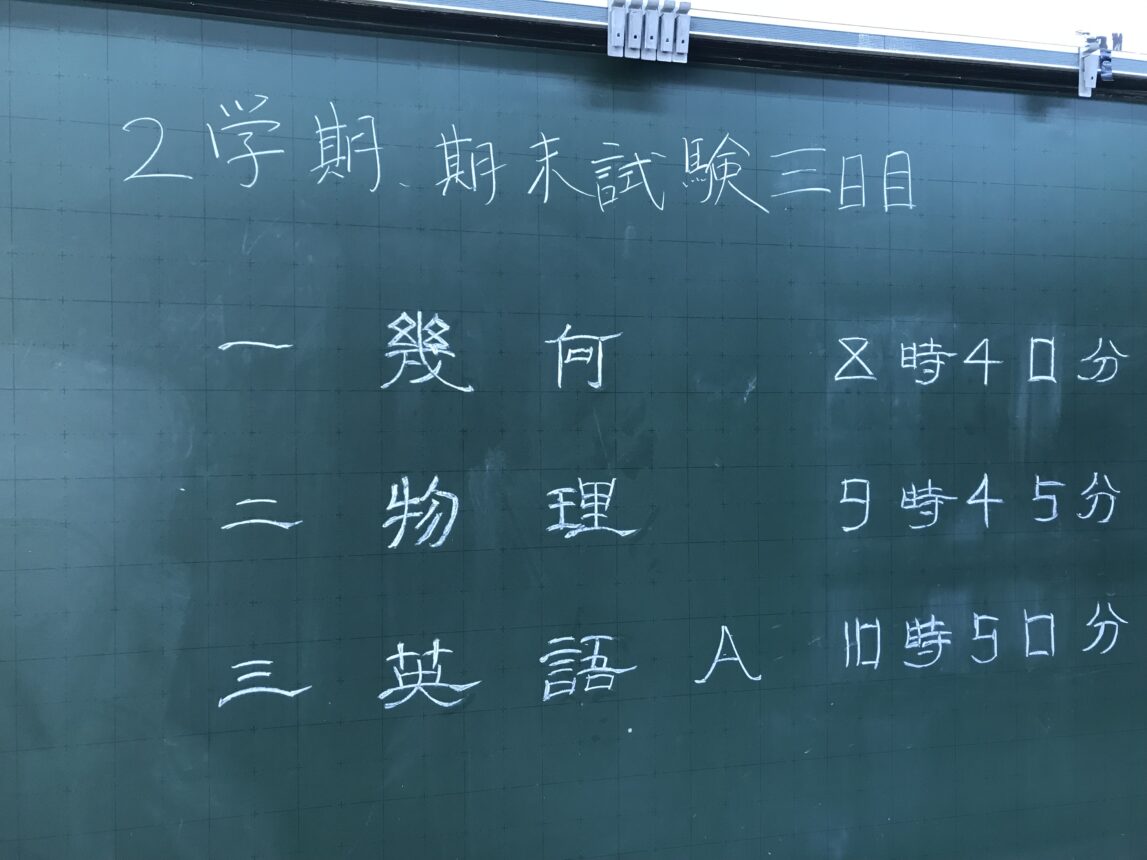 2学期、期末試験三日目
一 幾何 8時40分
二 物理 9時45分
三 英語A 10時50分